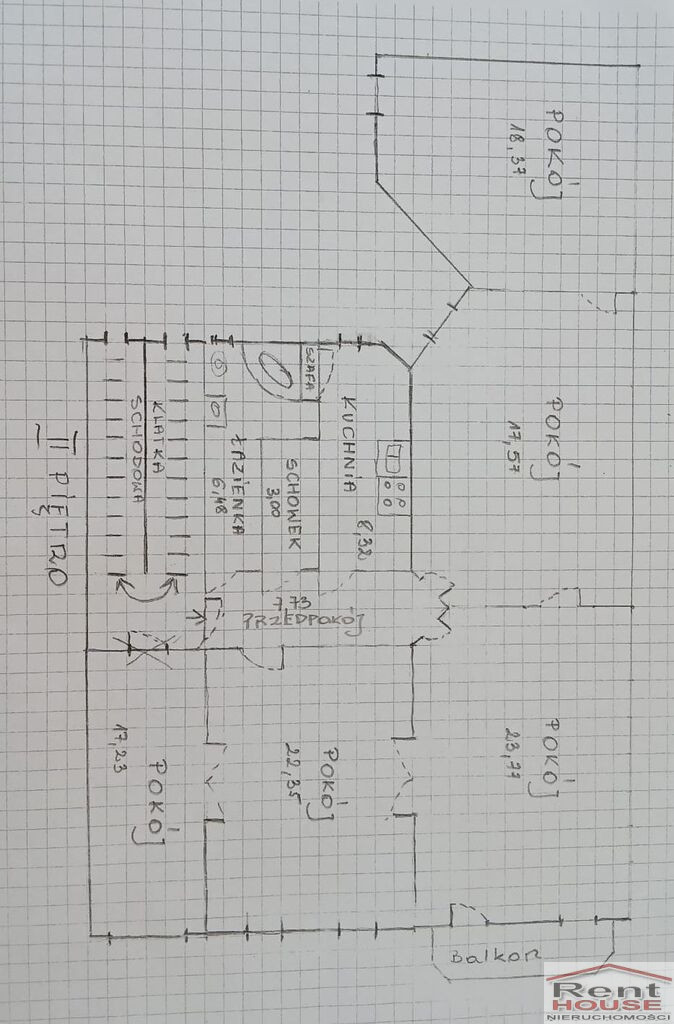 POKÓJ
18,37
POKÓJ
17,57
SZAFA
KUCHNIA
8,32
SCHOWEK
3,00
ŁAZIENKA
6,48
KLATKA
SCHODOWA
II PIĘTRO
7,73
PRZEDPOKÓJ
POKÓJ
23,77
POKÓJ
22,35
POKÓJ
17,23
Balkon
Rent
HOUSE
NIERUCHOMOŚCI